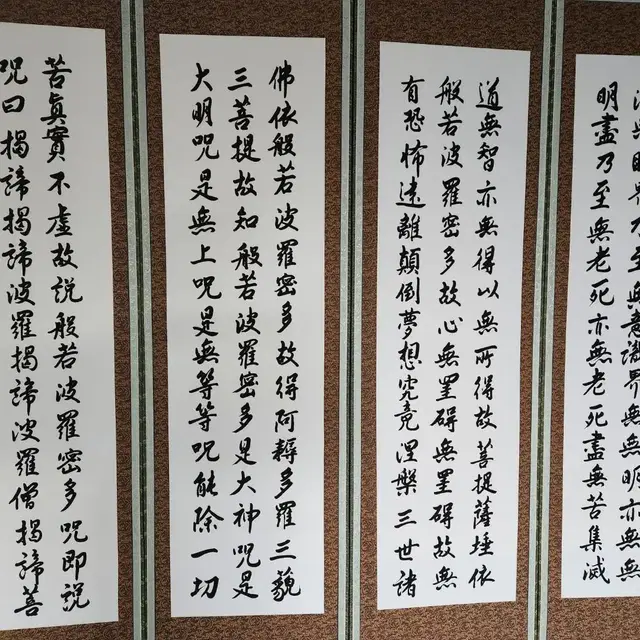 無眼界乃至無意識界無無明亦無無
明盡乃至無老死亦無老死盡無苦集滅
道無智亦無得以無所得故菩提薩埵依
般若波羅密多故心無罣礙無罣礙故無
有恐怖遠離顛倒夢想究竟涅槃三世諸
佛依般若波羅密多故得阿耨多羅三藐
三菩提故知般若波羅密多是大神咒是
大明咒是無上咒是無等等咒能除一切
苦眞實不虛故說般若波羅密多咒即說
咒曰揭諦揭諦波羅揭諦波羅僧揭諦菩